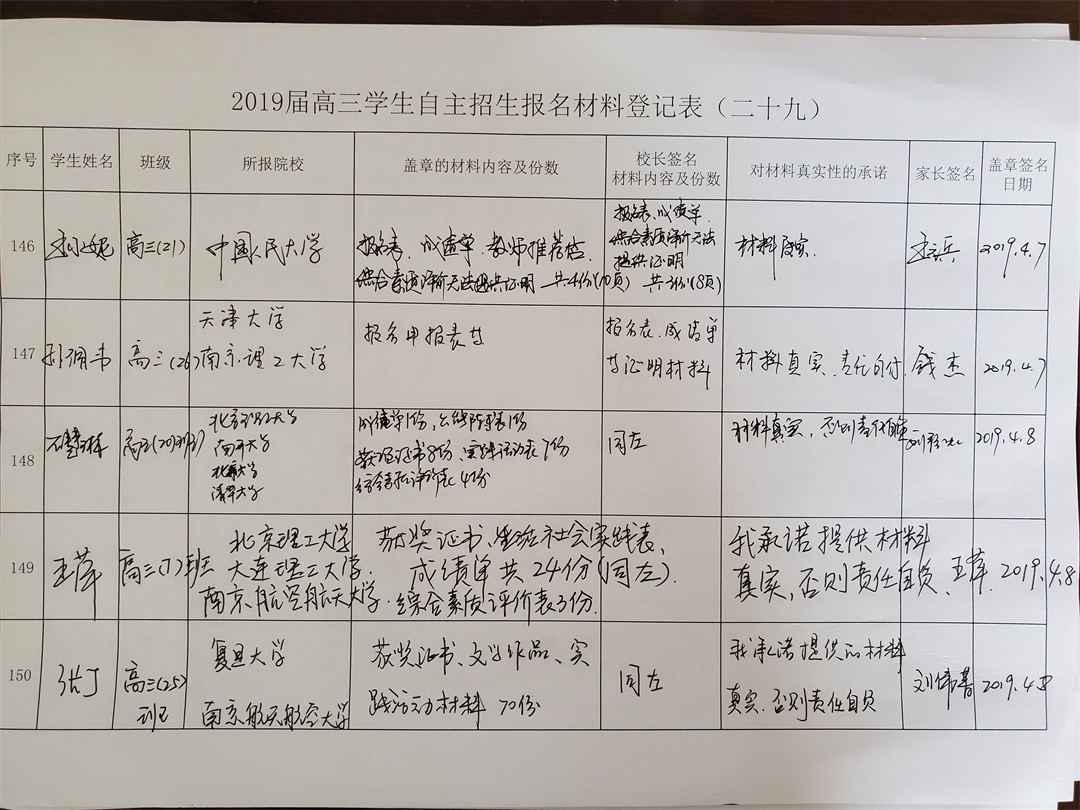 2019届高三学生自主招生报名材料登记表（二十九）
序号 学生姓名 班级 所报院校 盖章的材料内容及份数 校长签名材料内容及份数 对材料真实性的承诺 家长签名 盖章签名日期
146 高三(21) 中国人民大学
报名表、成绩单、教师推荐信、
综合素质评价无法提供证明 共4份(10页)
报名表、成绩单、
综合素质评价无法
提供证明
共3份(8页)
材料真实 2019.4.7
147 高三(26)
天津大学
南京理工大学
报名申报表等
报名表、成绩单
等证明材料
材料真实、责任自付 钱杰 2019.4.7
148
北京理工大学
南开大学
北京大学
清华大学
成绩单1份,
获奖证书8份、
综合素质评价表4份
同左
材料真实，否则责任自负
2019.4.8
149 王萍 高三(7)班
北京理工大学
大连理工大学.
南京航空航天大学.
获奖证书、社会实践表、
成绩单共24份(同左).
综合素质评价表3份.
我承诺提供材料
真实，否则责任自负、王萍. 2019.4.8
150 张丁 高三(25)班
复旦大学
南京航天航空大学
获奖证书、文学作品、实
践活动材料 70份
同左
我承诺提供的材料
真实.否则责任自负
2019.4.8